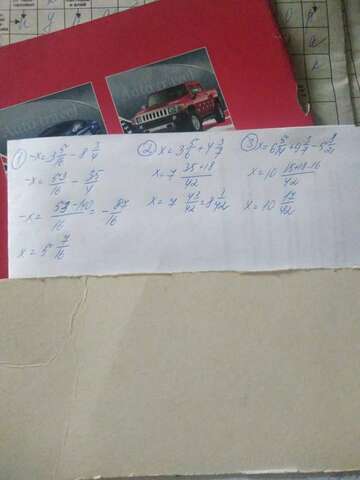 ① -x = 3 5/16 - 8 3/4
-x = 53/16 - 35/4
-x = 53-140/16 = - 87/16
x = 5 7/16
② x = 3 5/6 + 4 3/7
x = 7 35+18/42
x = 7
③ x = 6 5/14 + 9 3/7 - 5 8/21
x = 10 15+18-16/42
x = 10 17/42